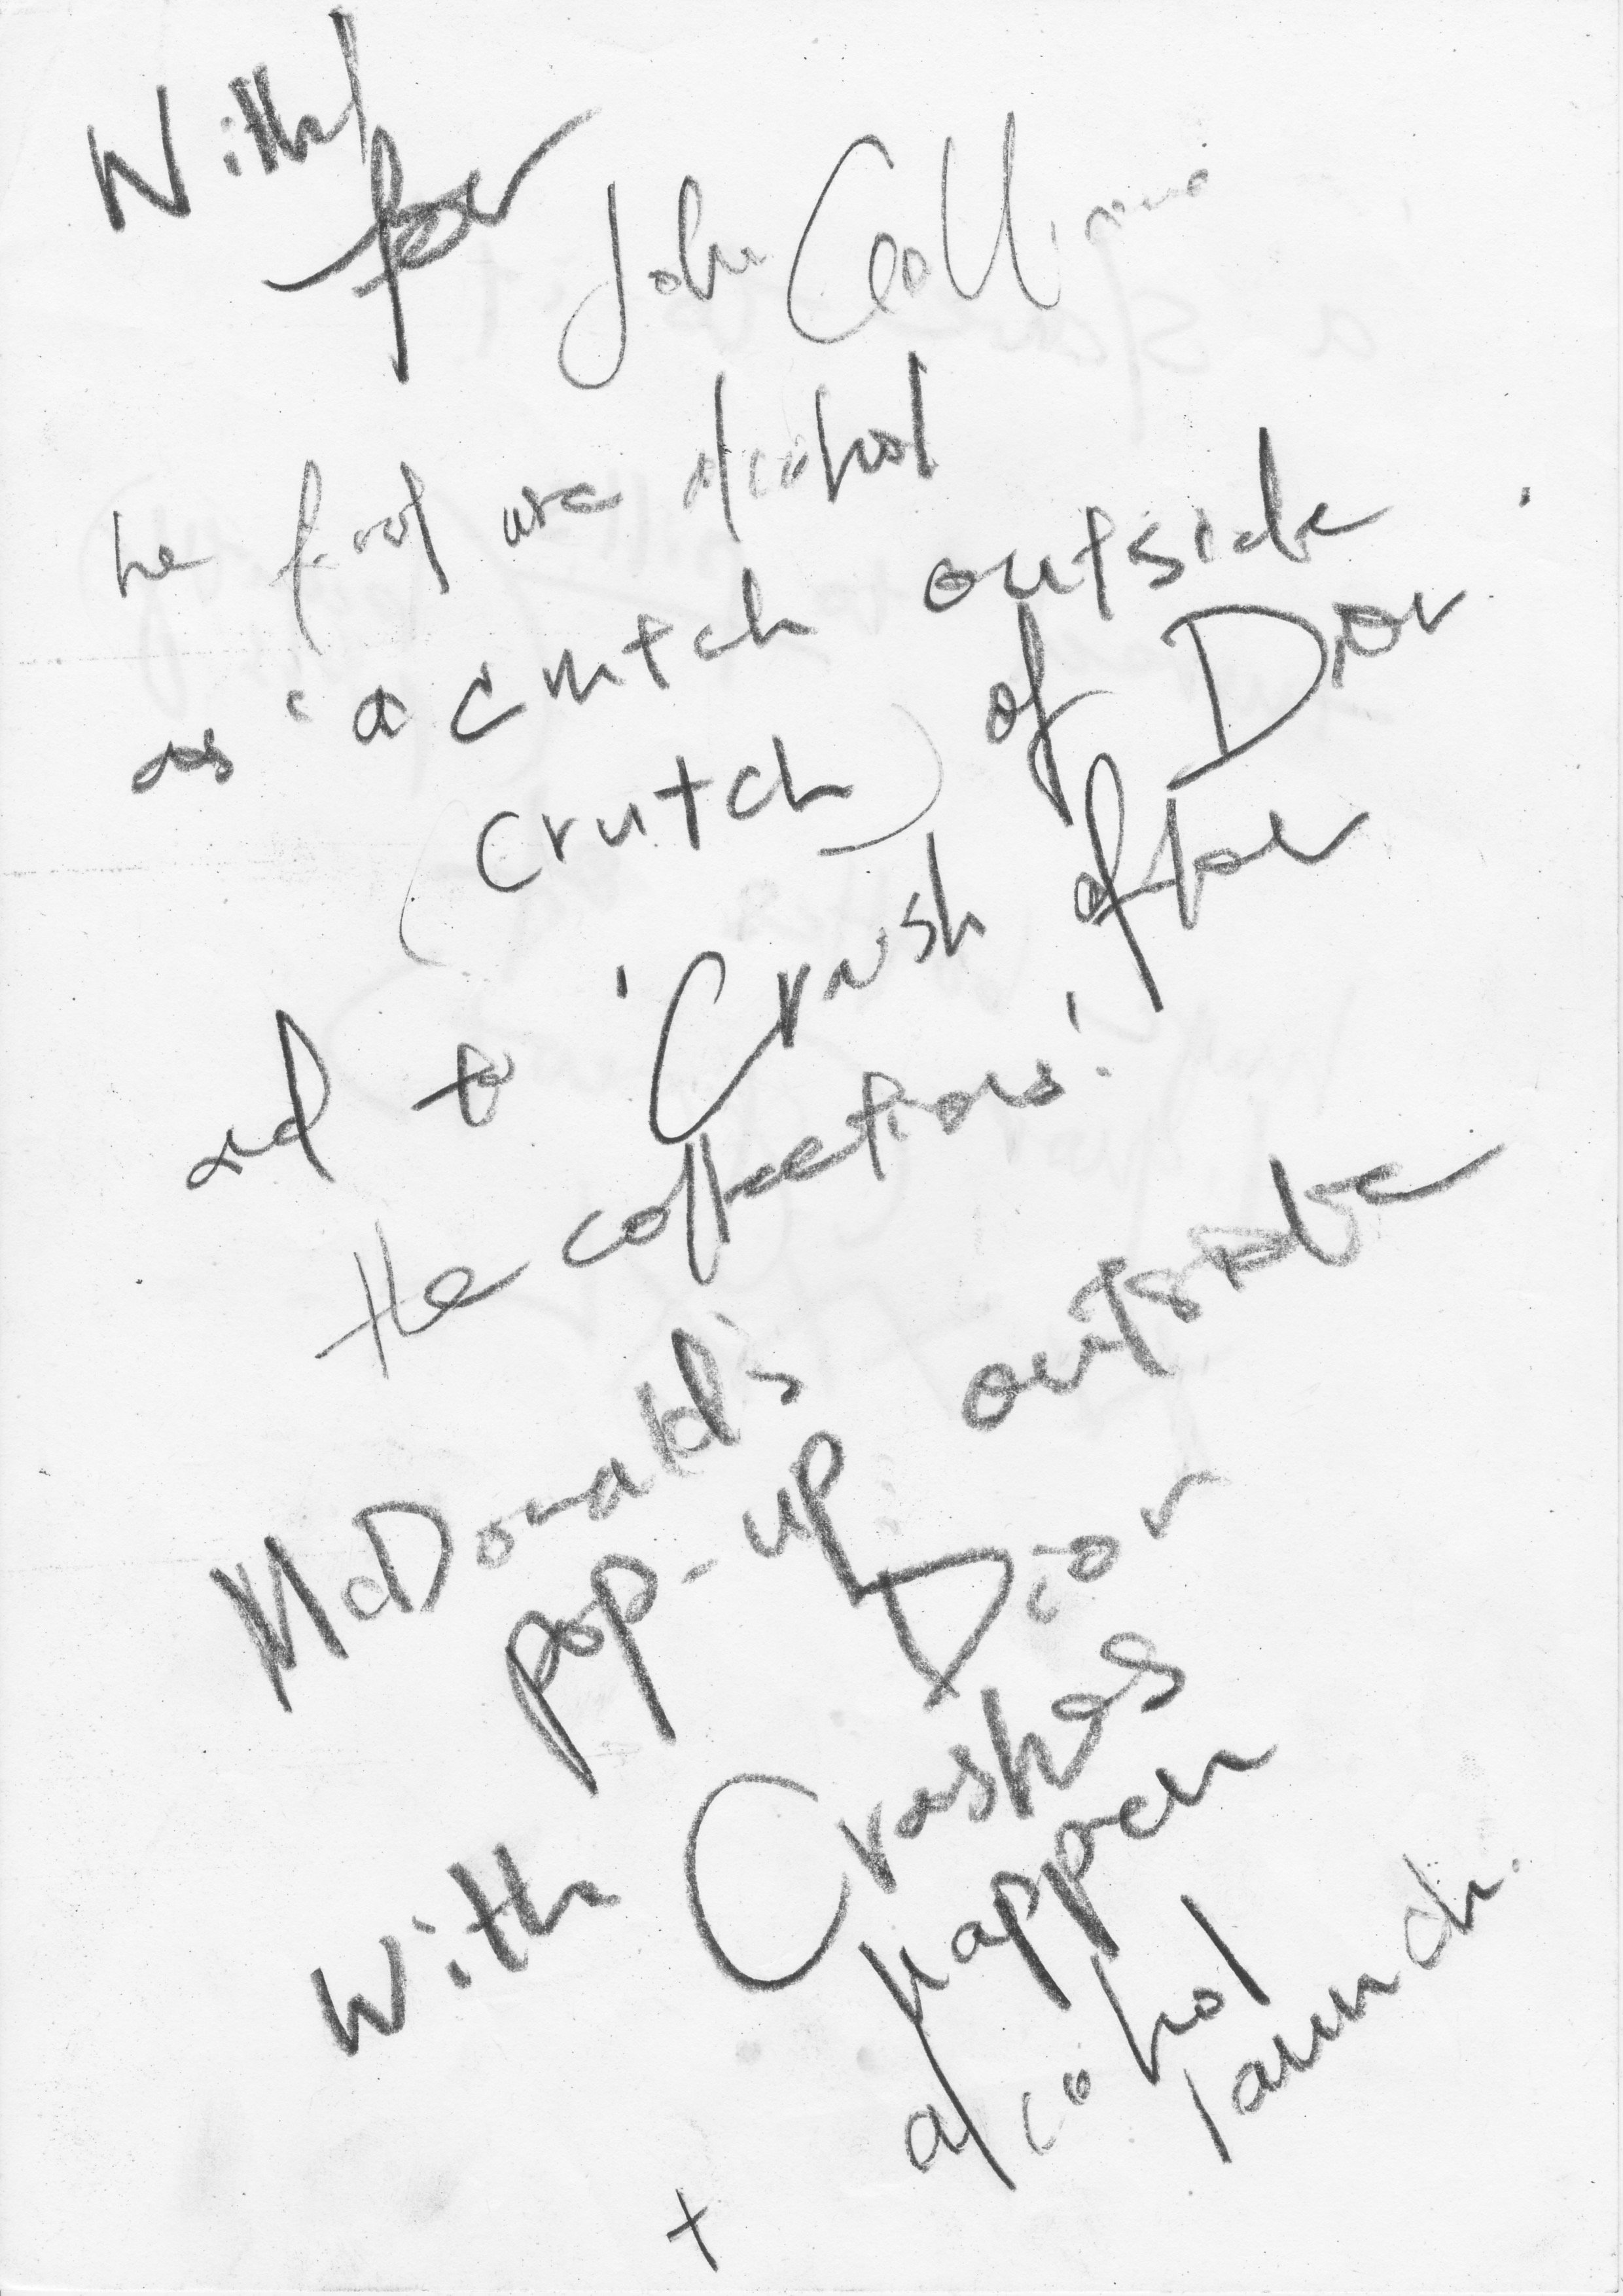 for
John Galliano
he
use alcohol
as 'a crutch outside
(crutch) of Dior
and to 'Crash after
the collections'.
McDonald's
pop-up outside
Dior
With Crashes
happen
+ alcohol
launch.